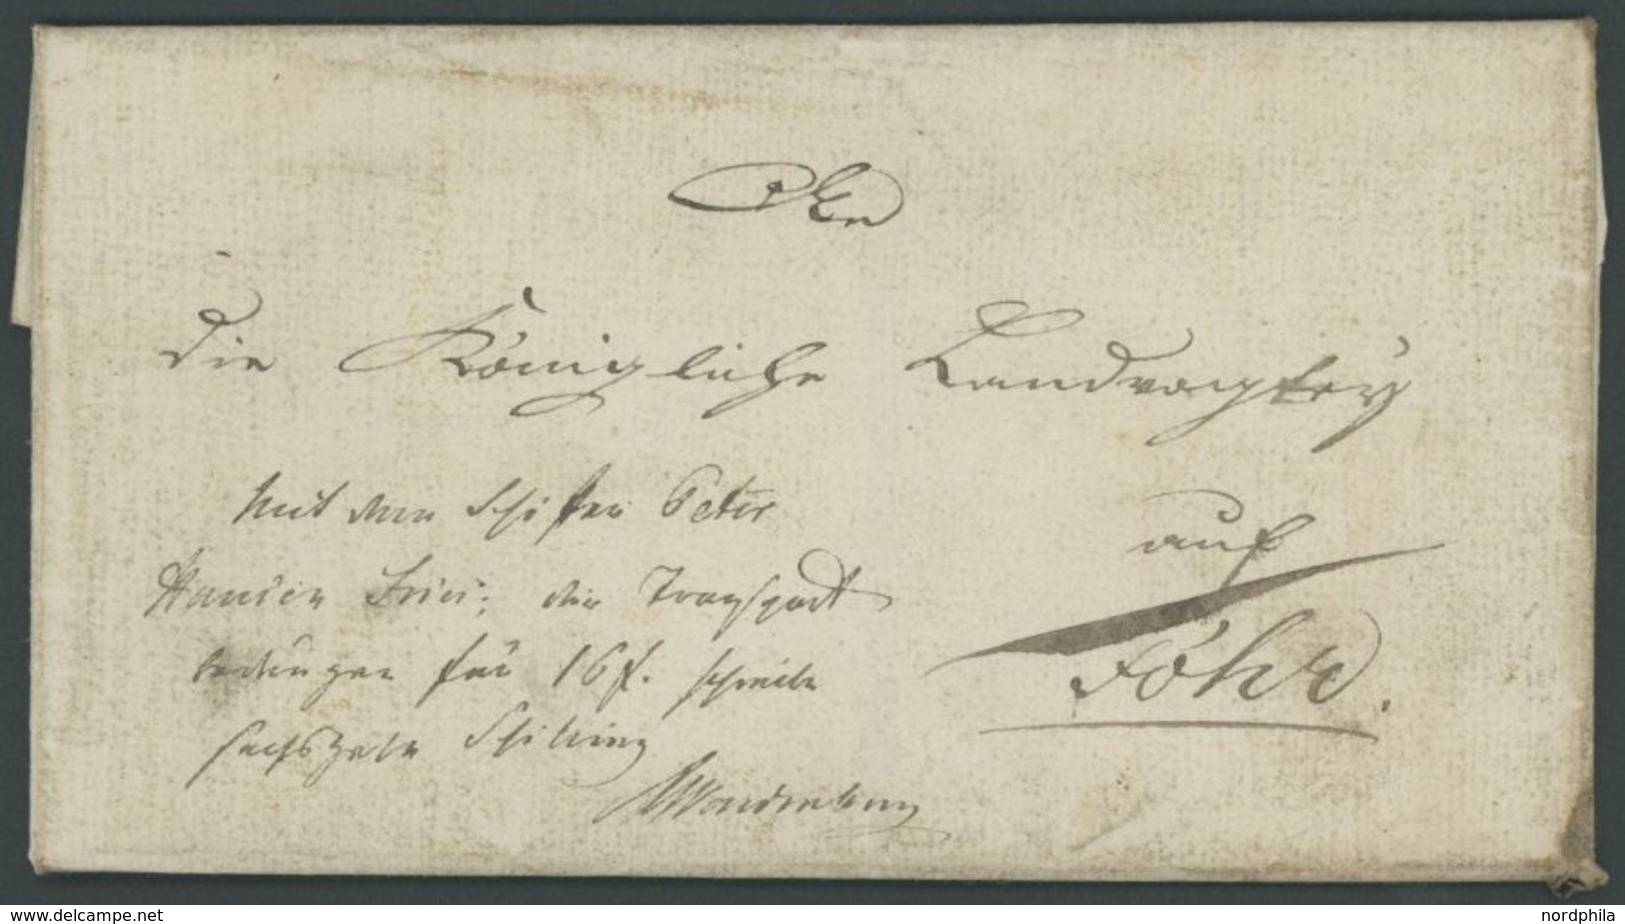 An
die Königliche Landvogtey
auf
Föhr.
Mit dem Schiffer Peter
Hansen der Transport
bedungen für 16 ß. schreibe
sechszehn Schilling
www.delcampe.net
nordphila